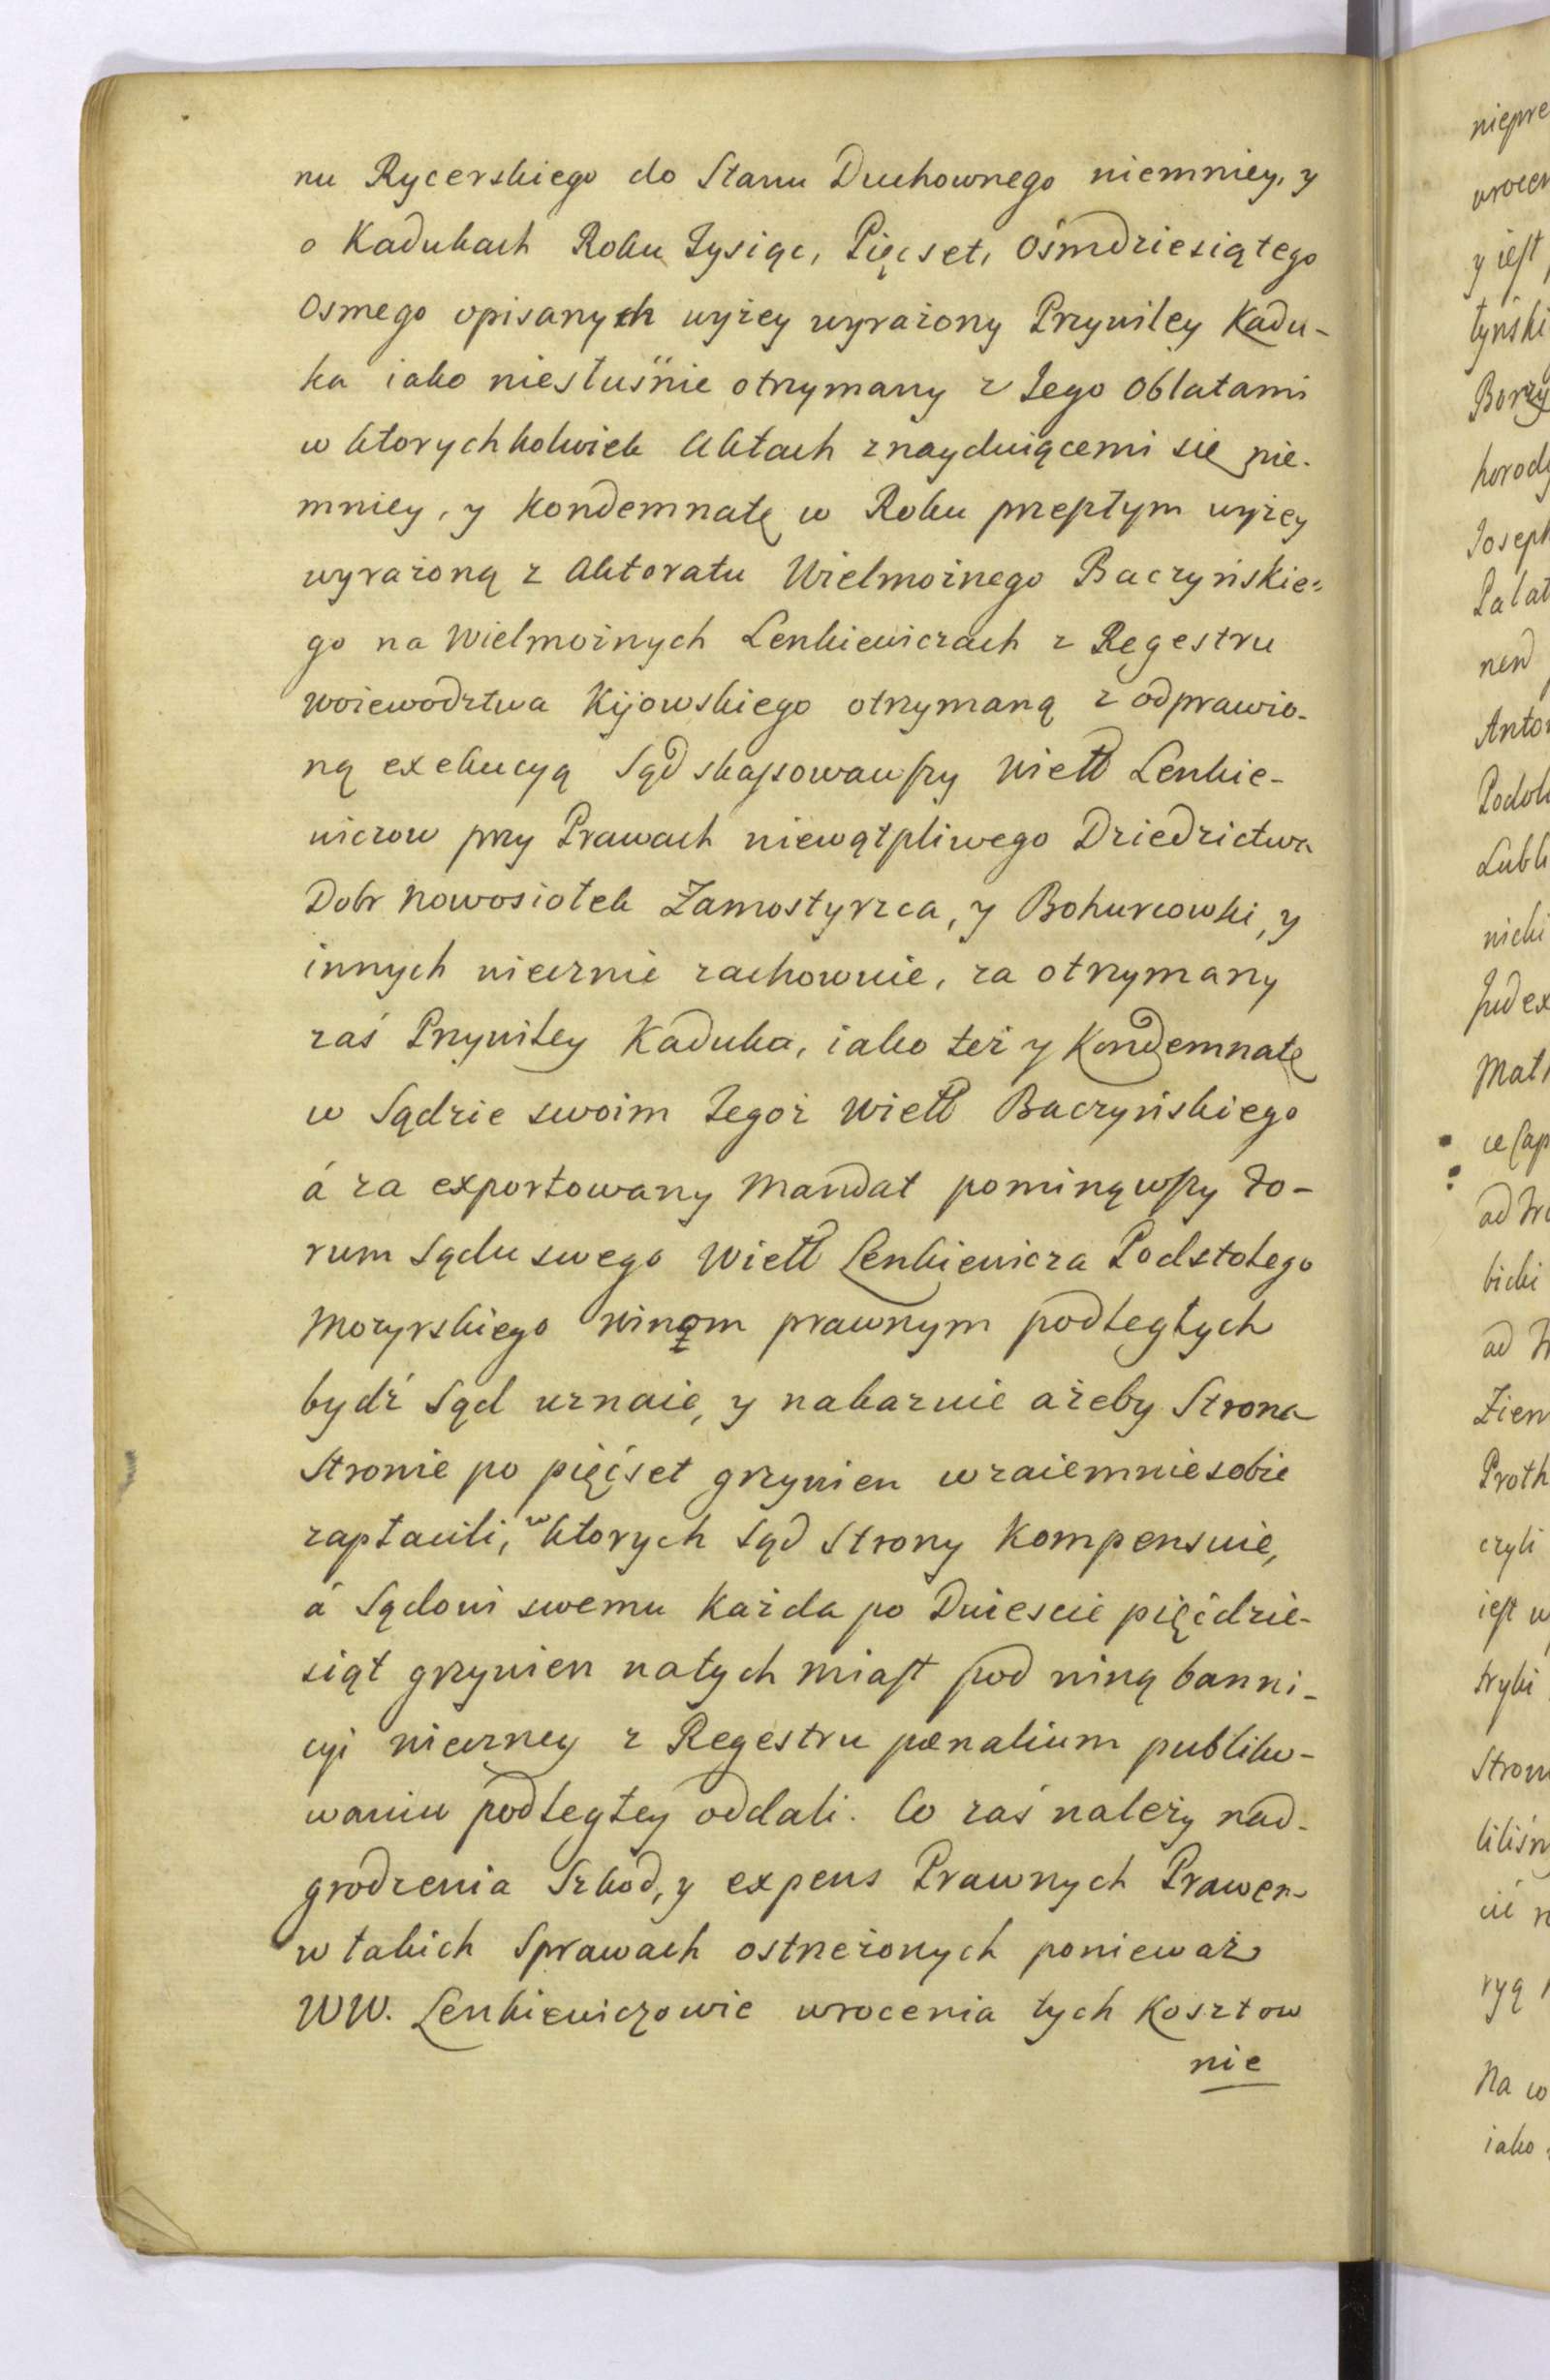 nu Rycerskiego do Stanu Duchownego niemniey, y
o Kadukach Roku Tysiąc, Pięcset, Ośmdziesiątego
Osmego opisanych wyżey wyrażony Przywiley Kadu-
ka iako niesłusnie otrzymany z Jego Oblatami
w ktorychkolwiek Aktach znayduiącemi się nie-
mniey, y Kondemnatę w Roku przeszłym wyżey
wyrażoną z Aktoratu Wielmożnego Baczyńskie-
go na Wielmożnych Lenkiewiczach z Regestru
Woiewodztwa Kijowskiego otrzymaną z odprawio-
ną exekucyą Sąd skassowawszy Wielł Lenkie-
wiczow przy Prawach niewątpliwego Dziedzictwa
Dobr Nowosiołek Zamostyrzca, y Bohurcowki, y
innych wiecznie zachowuie, za otrzymany
zaś Przywiley Kaduka, iako też y Kondemnatę
w Sądzie swoim Tegoż Wielł Baczyńskiego
á za exportowany Mandat pominąwszy Fo-
rum Sądu swego Wielł Lenkiewicza Podstolego
Mozyrskiego winom prawnym podległych
bydź Sąd uznaie, y nakazuie ażeby Strona
Stronie po pięćset grzywien wzaiemnie sobie
zapłacili, w ktorych Sąd Strony Kompensuie,
á Sądowi swemu Każda po Dwiescie pięćdzie-
siąt grzywien natych miast pod winą banni-
cyi wieczney z Regestru pœnalium publiko-
waniu podległey oddali. Co zaś należy nad-
grodzenia Szkod, y expens Prawnych Prawem
w takich Sprawach ostrzeżonych ponieważ
WW. Lenkiewiczowie wrocenia tych Kosztow
nie